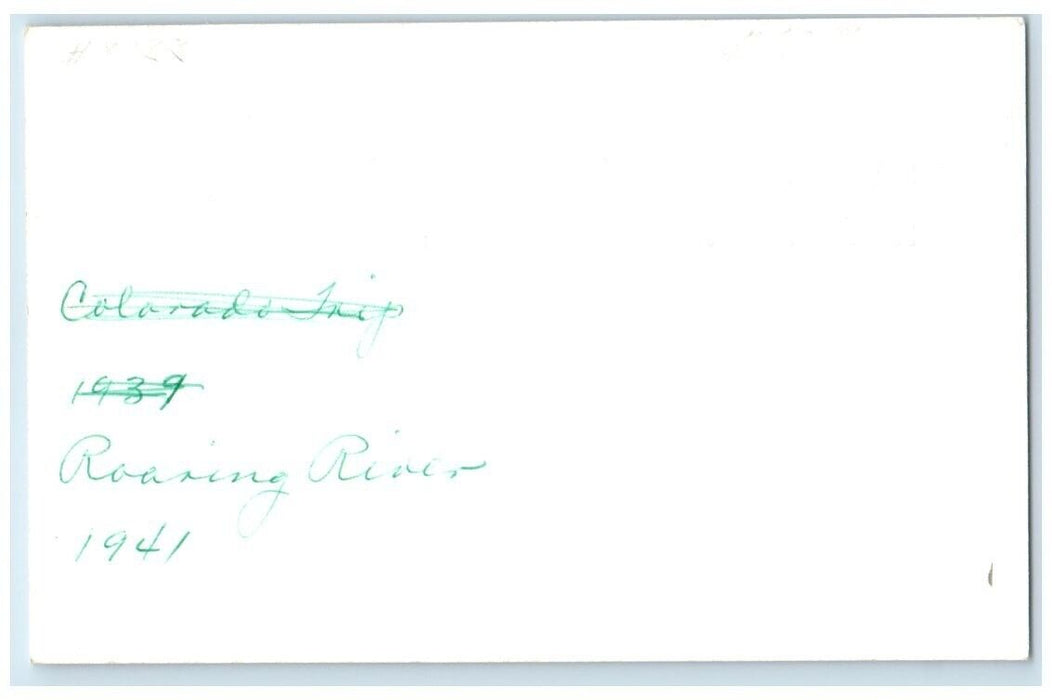 Colorado Trip
1939
Roaring River
1941